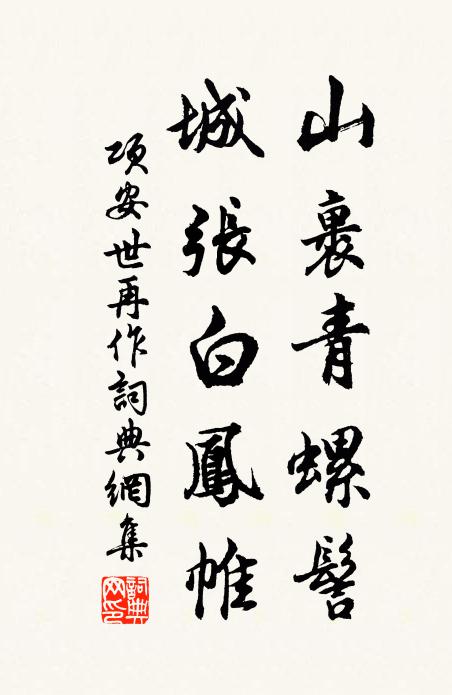 山裹青螺髻
城張白鳳帷
項安世再作詞典網集
詞典網印